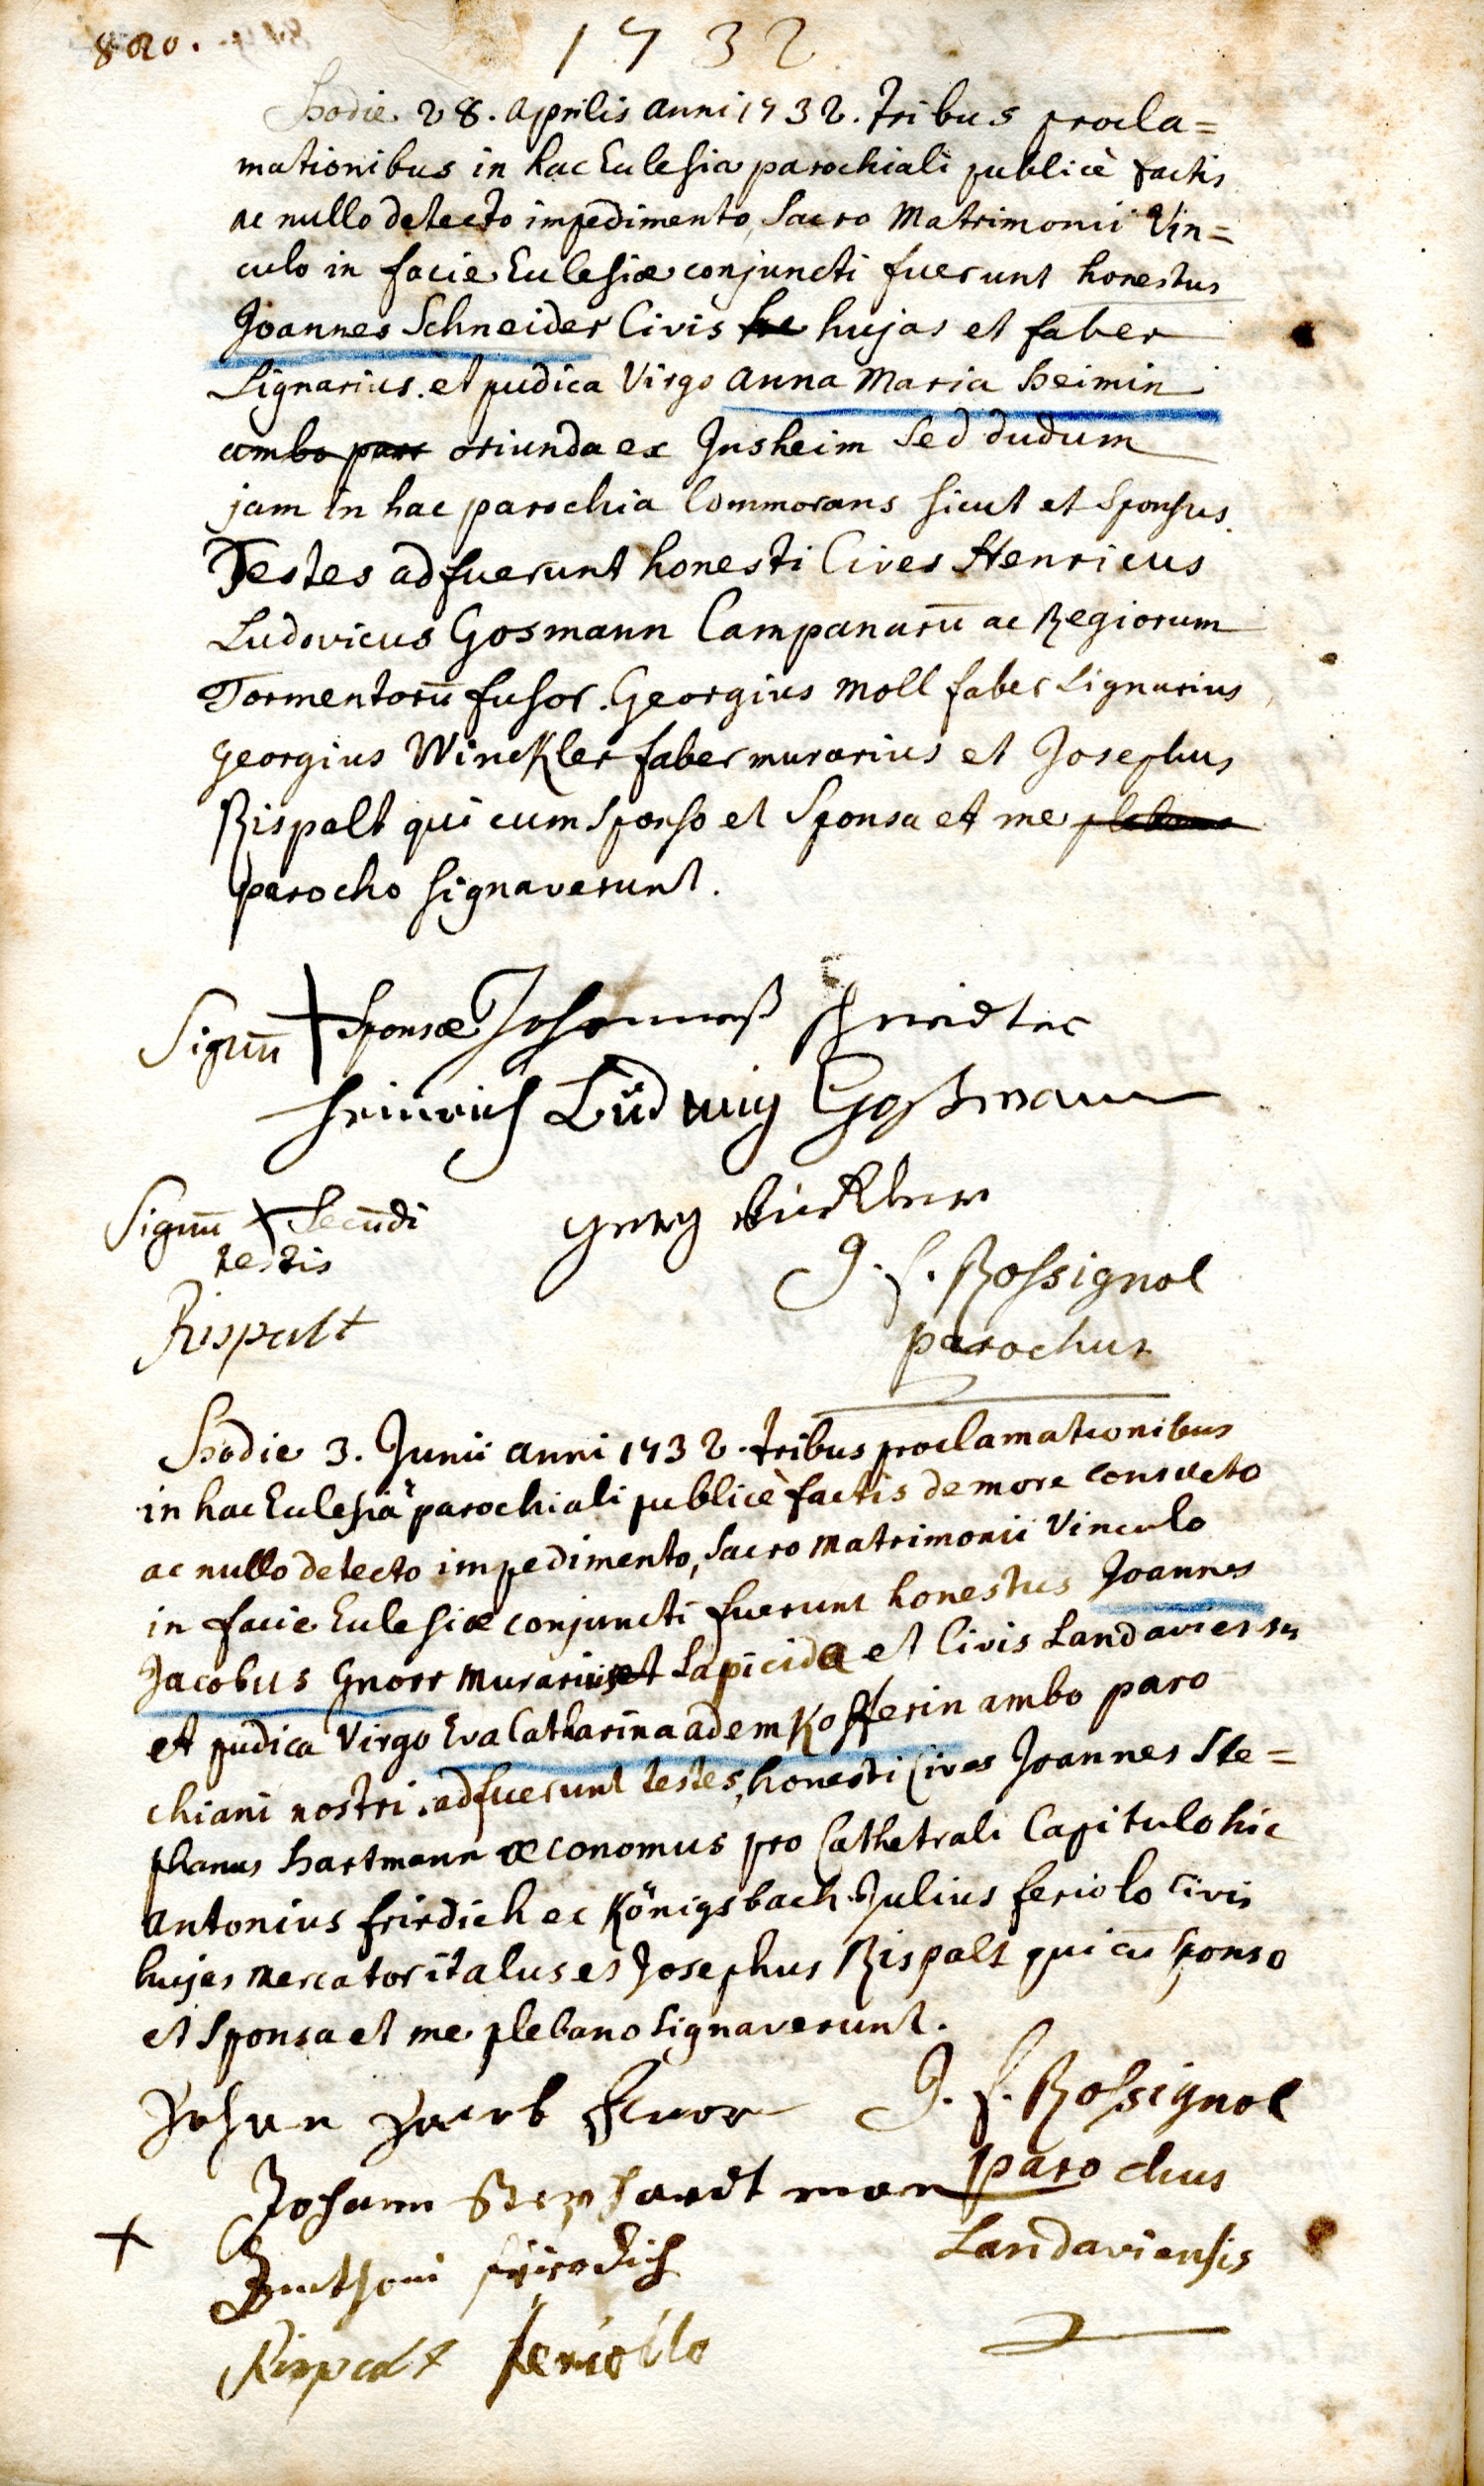 820.
1732
Hodie 28. Aprilis anni 1732. tribus procla=
mationibus in hac Eclesia parochiali publicè factis
ac nullo detecto impedimento, Sacro Matrimonii Vin=
culo in facie Eclesiæ conjuncti fuerunt honestus
Joannes Schneider Civis he hujas et faber
Lignarius. et pudica Virgo Anna Maria Heimin
ambo paro oriunda ex Insheim Sed dudum
jam in hac parochia Commorans sicut et Sponsus.
Testes adfuerunt honesti Cives Henricus
Ludovicus Gosmann Campanarū ac Regiorum
Tormentorū fusor. Georgius Moll faber Lignarius
Georgius Winckler faber murarius et Josephus
Rispalt qui cum Sponso et Sponsa et me plebano
parocho signaverunt.
Signū + Sponsæ Johannes Schneidter
Heinrich Ludwig Goßmann
Signū + Secūdi
testis
Georg Winckler
Rispalt
J. f. Rossignol
parochus
Hodie 3. Junii anni 1732. tribus proclamationibus
in hac Eclesiâ parochiali publicè factis de more consueto
ac nullo detecto impedimento, Sacro Matrimonii Vinculo
in facie Eclesiæ conjuncti fuerunt honestus Joannes
Jacobus Gnorr Murarius et Lapicida et Civis Landaviensis
et pudica Virgo Eva Catharina adem Kofferin ambo paro
chiani nostri. adfuerunt testes, honesti Cives Joannes Ste=
phanus Hartmann œconomus pro Cathetrali Capitulo hic
Antonius fridich ec Königsbach Julius feriolo Civis
hujas Mercator italus et Josephus Rispalt qui cū Sponso
et Sponsa et me plebano Signaverunt.
Johan Jacob Knor
J. f. Rossignol
parochus
Johann Stephan hardt man
Landaviensis
+ Anthoni friedrich
Rispalt feriollo